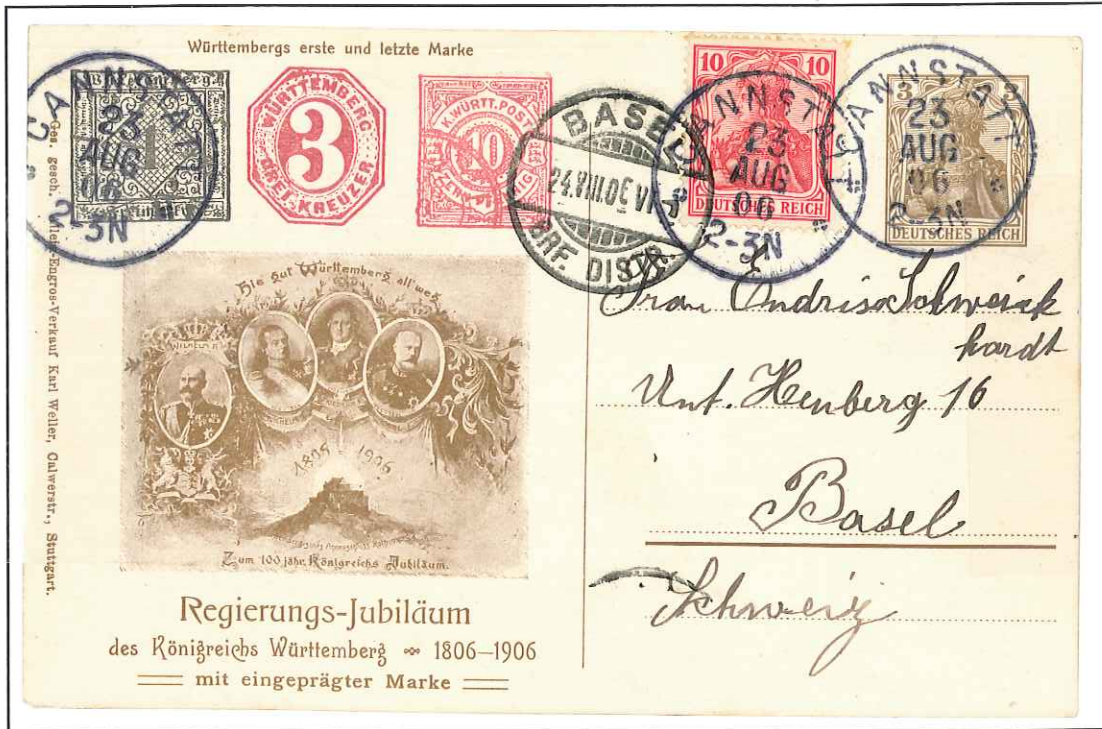 Württembergs erste und letzte Marke
Württemberg
1
CANNSTATT
23
AUG
06
2-3N
WÜRTTEMBERG
3
DREI KREUZER
K.WÜRTT.POST
10
BASEL
24.VIII.06 VI
BRF. DISTR.
10 10
DEUTSCHES REICH
CANNSTATT
23
AUG
06
2-3N
3 3
DEUTSCHES REICH
CANNSTATT
23
AUG
06
2-3N
Ges. gesch.
Engros-Verkauf Karl Weller, Calwerstr., Stuttgart.
Hie gut Württemberg allweg
WILHELM II
1806 1906
Zum 100 jähr. Königreichs Jubiläum.
Regierungs-Jubiläum
des Königreichs Württemberg 1806–1906
mit eingeprägter Marke
Frau Schweick
hardt
Unt. Heuberg 16
Basel
Schweiz